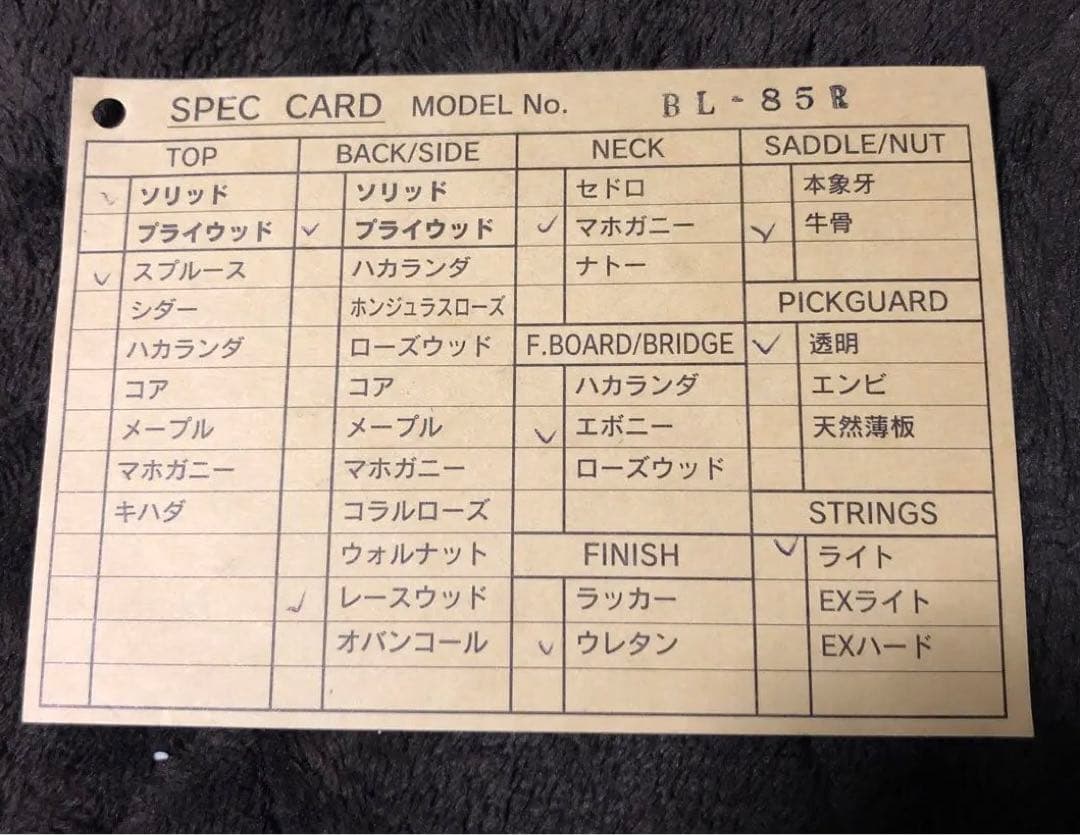 SPEC CARD MODEL No. BL-85R
TOP
✓ ソリッド
プライウッド
✓ スプルース
シダー
ハカランダ
コア
メープル
マホガニー
キハダ
BACK/SIDE
ソリッド
✓ プライウッド
ハカランダ
ホンジュラスローズ
ローズウッド
コア
メープル
マホガニー
コラルローズ
ウォルナット
✓ レースウッド
オバンコール
NECK
セドロ
✓ マホガニー
ナトー
F.BOARD/BRIDGE
ハカランダ
✓ エボニー
ローズウッド
FINISH
ラッカー
✓ ウレタン
SADDLE/NUT
本象牙
✓ 牛骨
PICKGUARD
✓ 透明
エンビ
天然薄板
STRINGS
✓ ライト
EXライト
EXハード